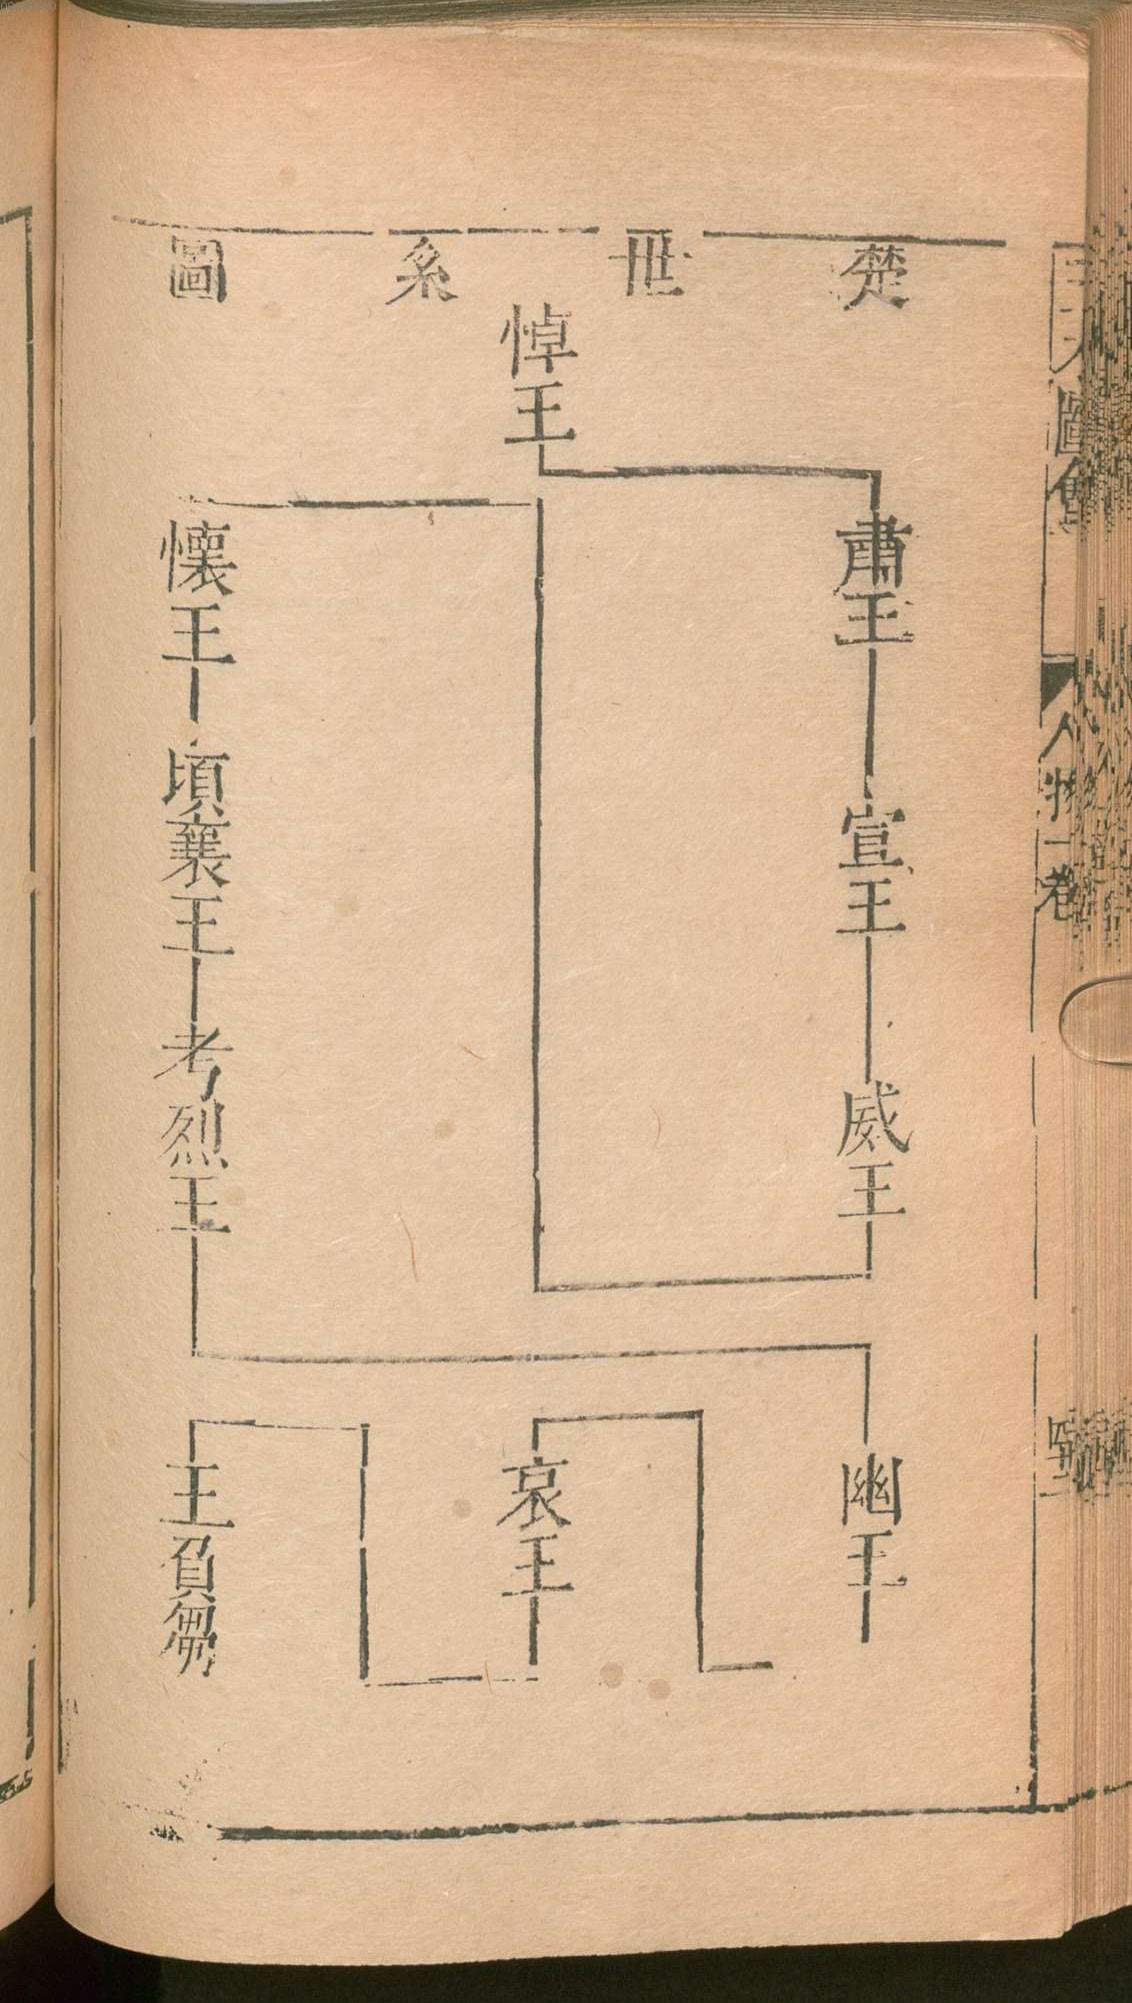 楚世系圖
悼王
肅王
宣王
威王
懷王
頃襄王
考烈王
幽王
哀王
王負芻
圖會
人物一卷